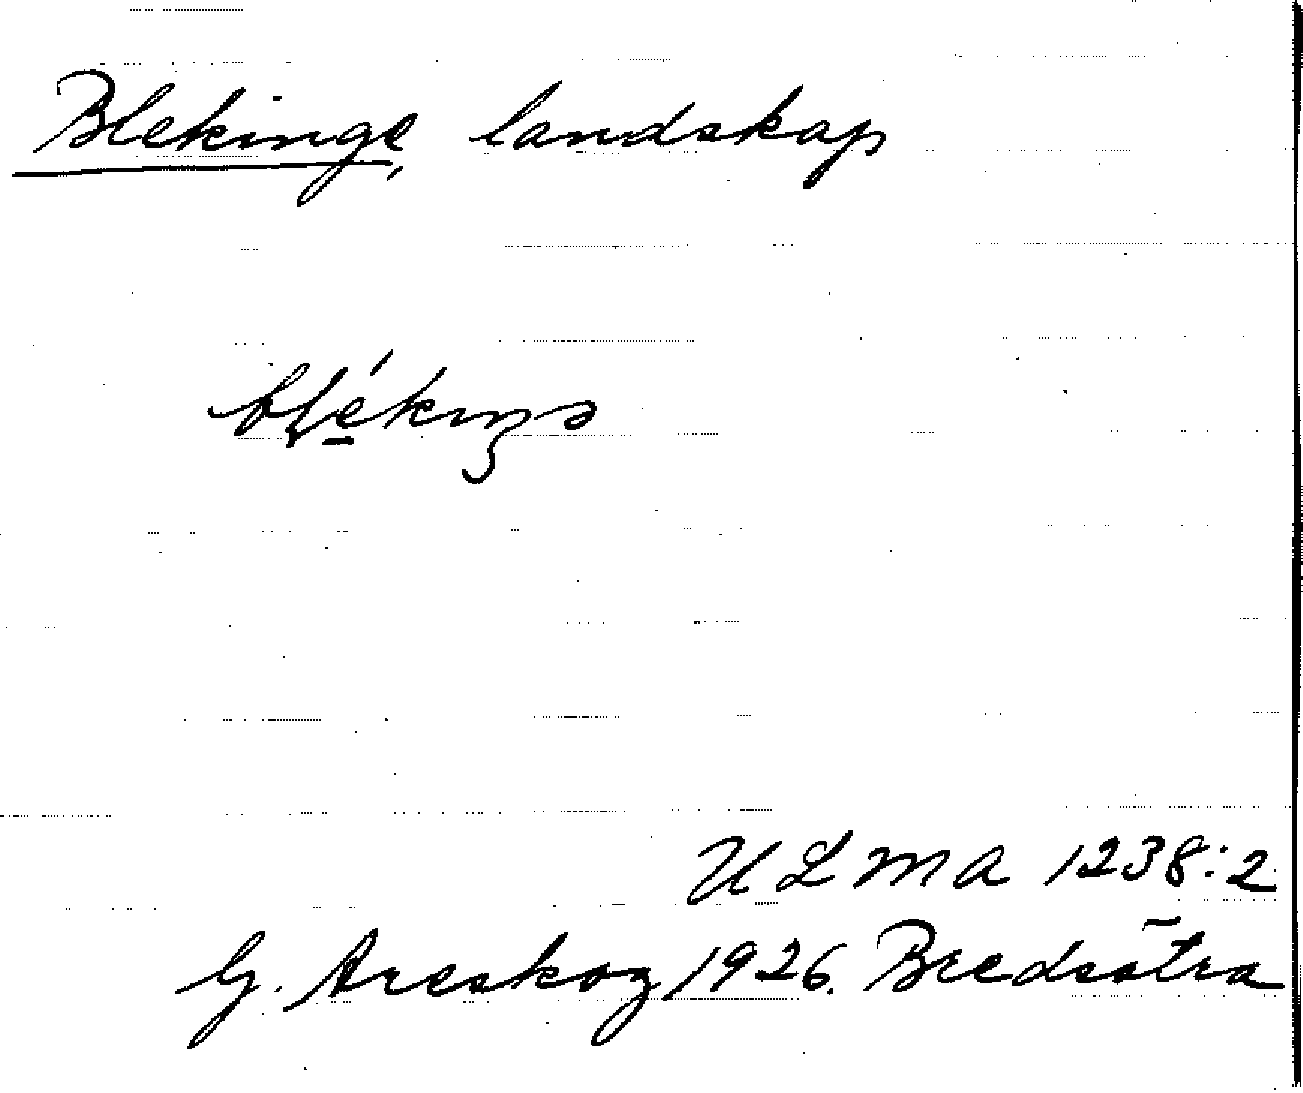 Blekinge, landskap
blékiŋə
ULMA 1238:2
G. Areskog 1926. Bredsätra